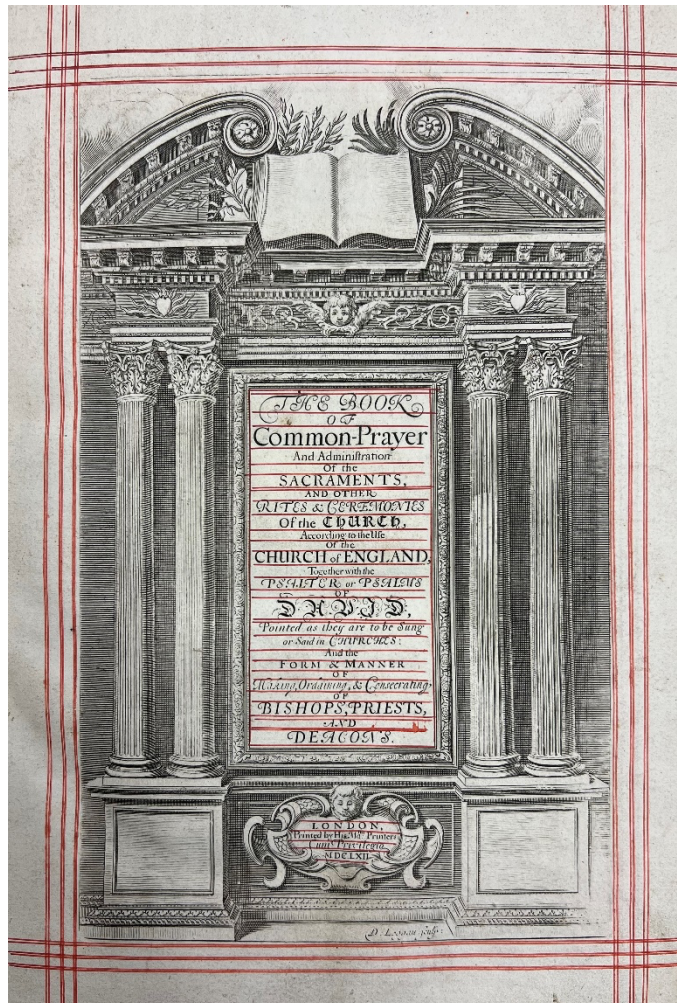 THE BOOK
OF
Common-Prayer
And Adminiſtration
Of the
SACRAMENTS,
AND OTHER
RITES & CEREMONIES
Of the CHURCH,
According to the Uſe
Of the
CHURCH of ENGLAND,
Together with the
PSALTER or PSALMS
OF
DAVID,
Pointed as they are to be Sung
or Said in CHURCHES:
And the
FORM & MANNER
OF
Making, Ordaining, & Conſecrating,
OF
BISHOPS, PRIESTS,
AND
DEACONS.
LONDON,
Printed by His Ma.ties Printers
Cum Privilegio
MDCLXII
D. Loggan ſculp: